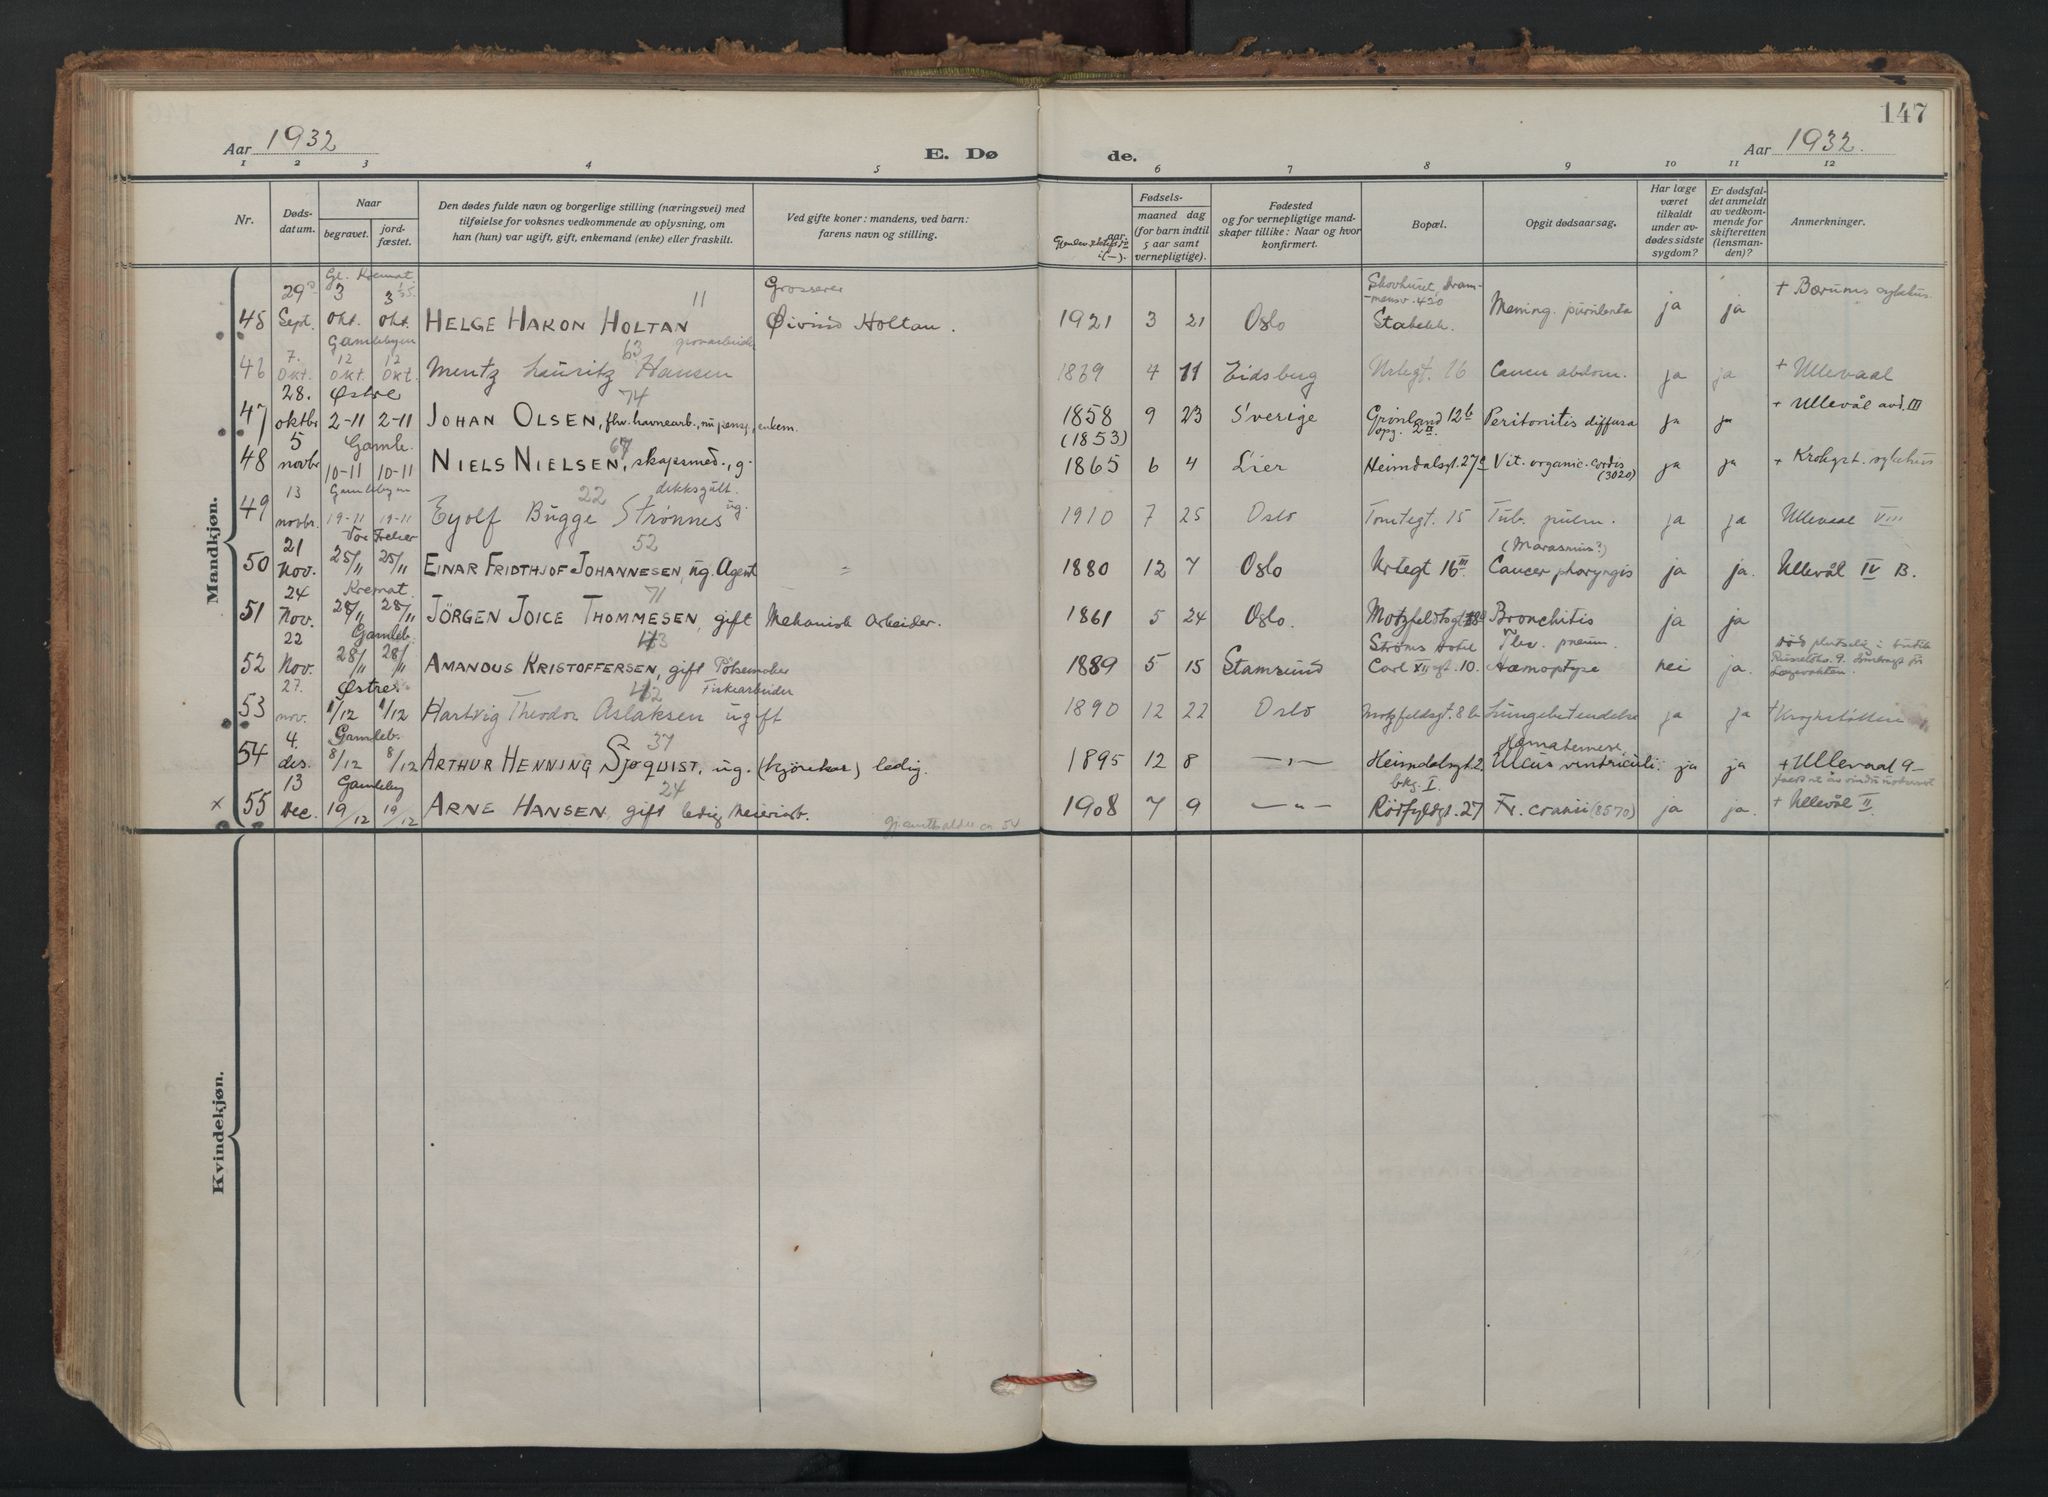 147
Aar 1932
E. Dø
de.
Aar 1932.
1 2 3 4 5 6 7 8 9 10 11 12
Nr.
Døds-
datum.
Naar
begravet.
jord-
fæstet.
Den dødes fulde navn og borgerlige stilling (næringsvei) med
tilføielse for voksnes vedkommende av oplysning, om
han (hun) var ugift, gift, enkemand (enke) eller fraskilt.
Ved gifte koner: mandens, ved barn:
farens navn og stilling.
Fødsels-
aar. maaned dag
(for barn indtil
5 aar samt
vernepligtige).
Fødested
og for vernepligtige mand-
skaper tillike: Naar og hvor
konfirmert.
Bopæl.
Opgit dødsaarsag.
Har læge
været
tilkaldt
under av-
dødes sidste
sygdom?
Er dødsfal-
det anmeldt
av vedkom-
mende for
skifteretten
(lensman-
den)?
Anmerkninger.
Mandkjøn.
Gl. Kremat.
29 3 3 11 Grosserer Skovhuset, Dram-
mensv. 420 + Bærums sykehus.
45 Sept. Okt. Okt. HELGE HAKON HOLTAN Øivind Holtan. 1921 3 21 Oslo Stabekk. Mening. purulenta ja ja
Gamlebyen
7. 12 12 63 grovarbeider
46 Okt. Okt. Okt. Mentz Lauritz Hansen 1869 4 11 Eidsberg Urtegt. 16 Cancer abdom. ja ja + Ullevaal
28. Østre 74
47 oktbr 2-11 2-11 JOHAN OLSEN, fhv. havnearb., nu pensj., enkem. 1858 9 23 Sverige Grønland 12b
opg. 2 II. Peritonitis diffusa ja ja + Ullevål avd. III
(1853)
5 Gamle. 67
48 novbr 10-11 10-11 NIELS NIELSEN, skapsmed., g. 1865 6 4 Lier Heimdalsgt. 27 Vit. organic. cordis
(3020) ja ja + Krohgst. sykehus
13 Gamlebyen 22 dekksgutt.
49 novbr. 19-11 19-11 Eyolf Bugge Strønnes ug. 1910 7 25 Oslo Tomtegt. 15 Tub. pulm. ja ja Ullevaal VIII
21 Vor Frelser 52 (Marasmus?)
50 Nov. 25/11 25/11 EINAR FRIDTHJOF JOHANNESEN, ug. Agent " 1880 12 7 Oslo Urtegt 16 III. Cancer pharyngis ja ja. Ullevål IV B.
24 Kremat. 71
51 Nov. 28/11 28/11 JÖRGEN JOICE THOMMESEN, gift Mekanisk arbeider. 1861 5 24 Oslo. Motzfeldtsgt Bronchitis ja ja
22 Gamleb. 43 Strøms Hotel
52 Nov. 28/11 28/11 AMANDUS KRISTOFFERSEN, gift Pølsemaker 1889 5 15 Stamsund Carl XII gt. 10. Hæmoptyse nei ja.
27. Østre. 42 Fiskearbeider
53 nov. 1/12 1/12 Hartvig Theodor Aslaksen ugift 1890 12 22 Oslo Motzfeldsgt. 8 b Lungebetendelse ja ja
4. Gamleb. 37 Hematemese,
54 des. 8/12 8/12 ARTHUR HENNING SJØQUIST, ug. (kjørekar) ledig. 1895 12 8 —„— Heimdalsgt. 2 Ulcus ventriculi. ja ja + Ullevaal 9
bkg. I.
13 Gamleby 24
× 55 Dec. 19/12 19/12 ARNE HANSEN, gift ledig Meierist. 1908 7 9 —"— Rødfyldgt. 27 Fr. cranii (8570) ja ja. + Ullevål II.
gj.snittsalder ca 54
Kvindekjøn.